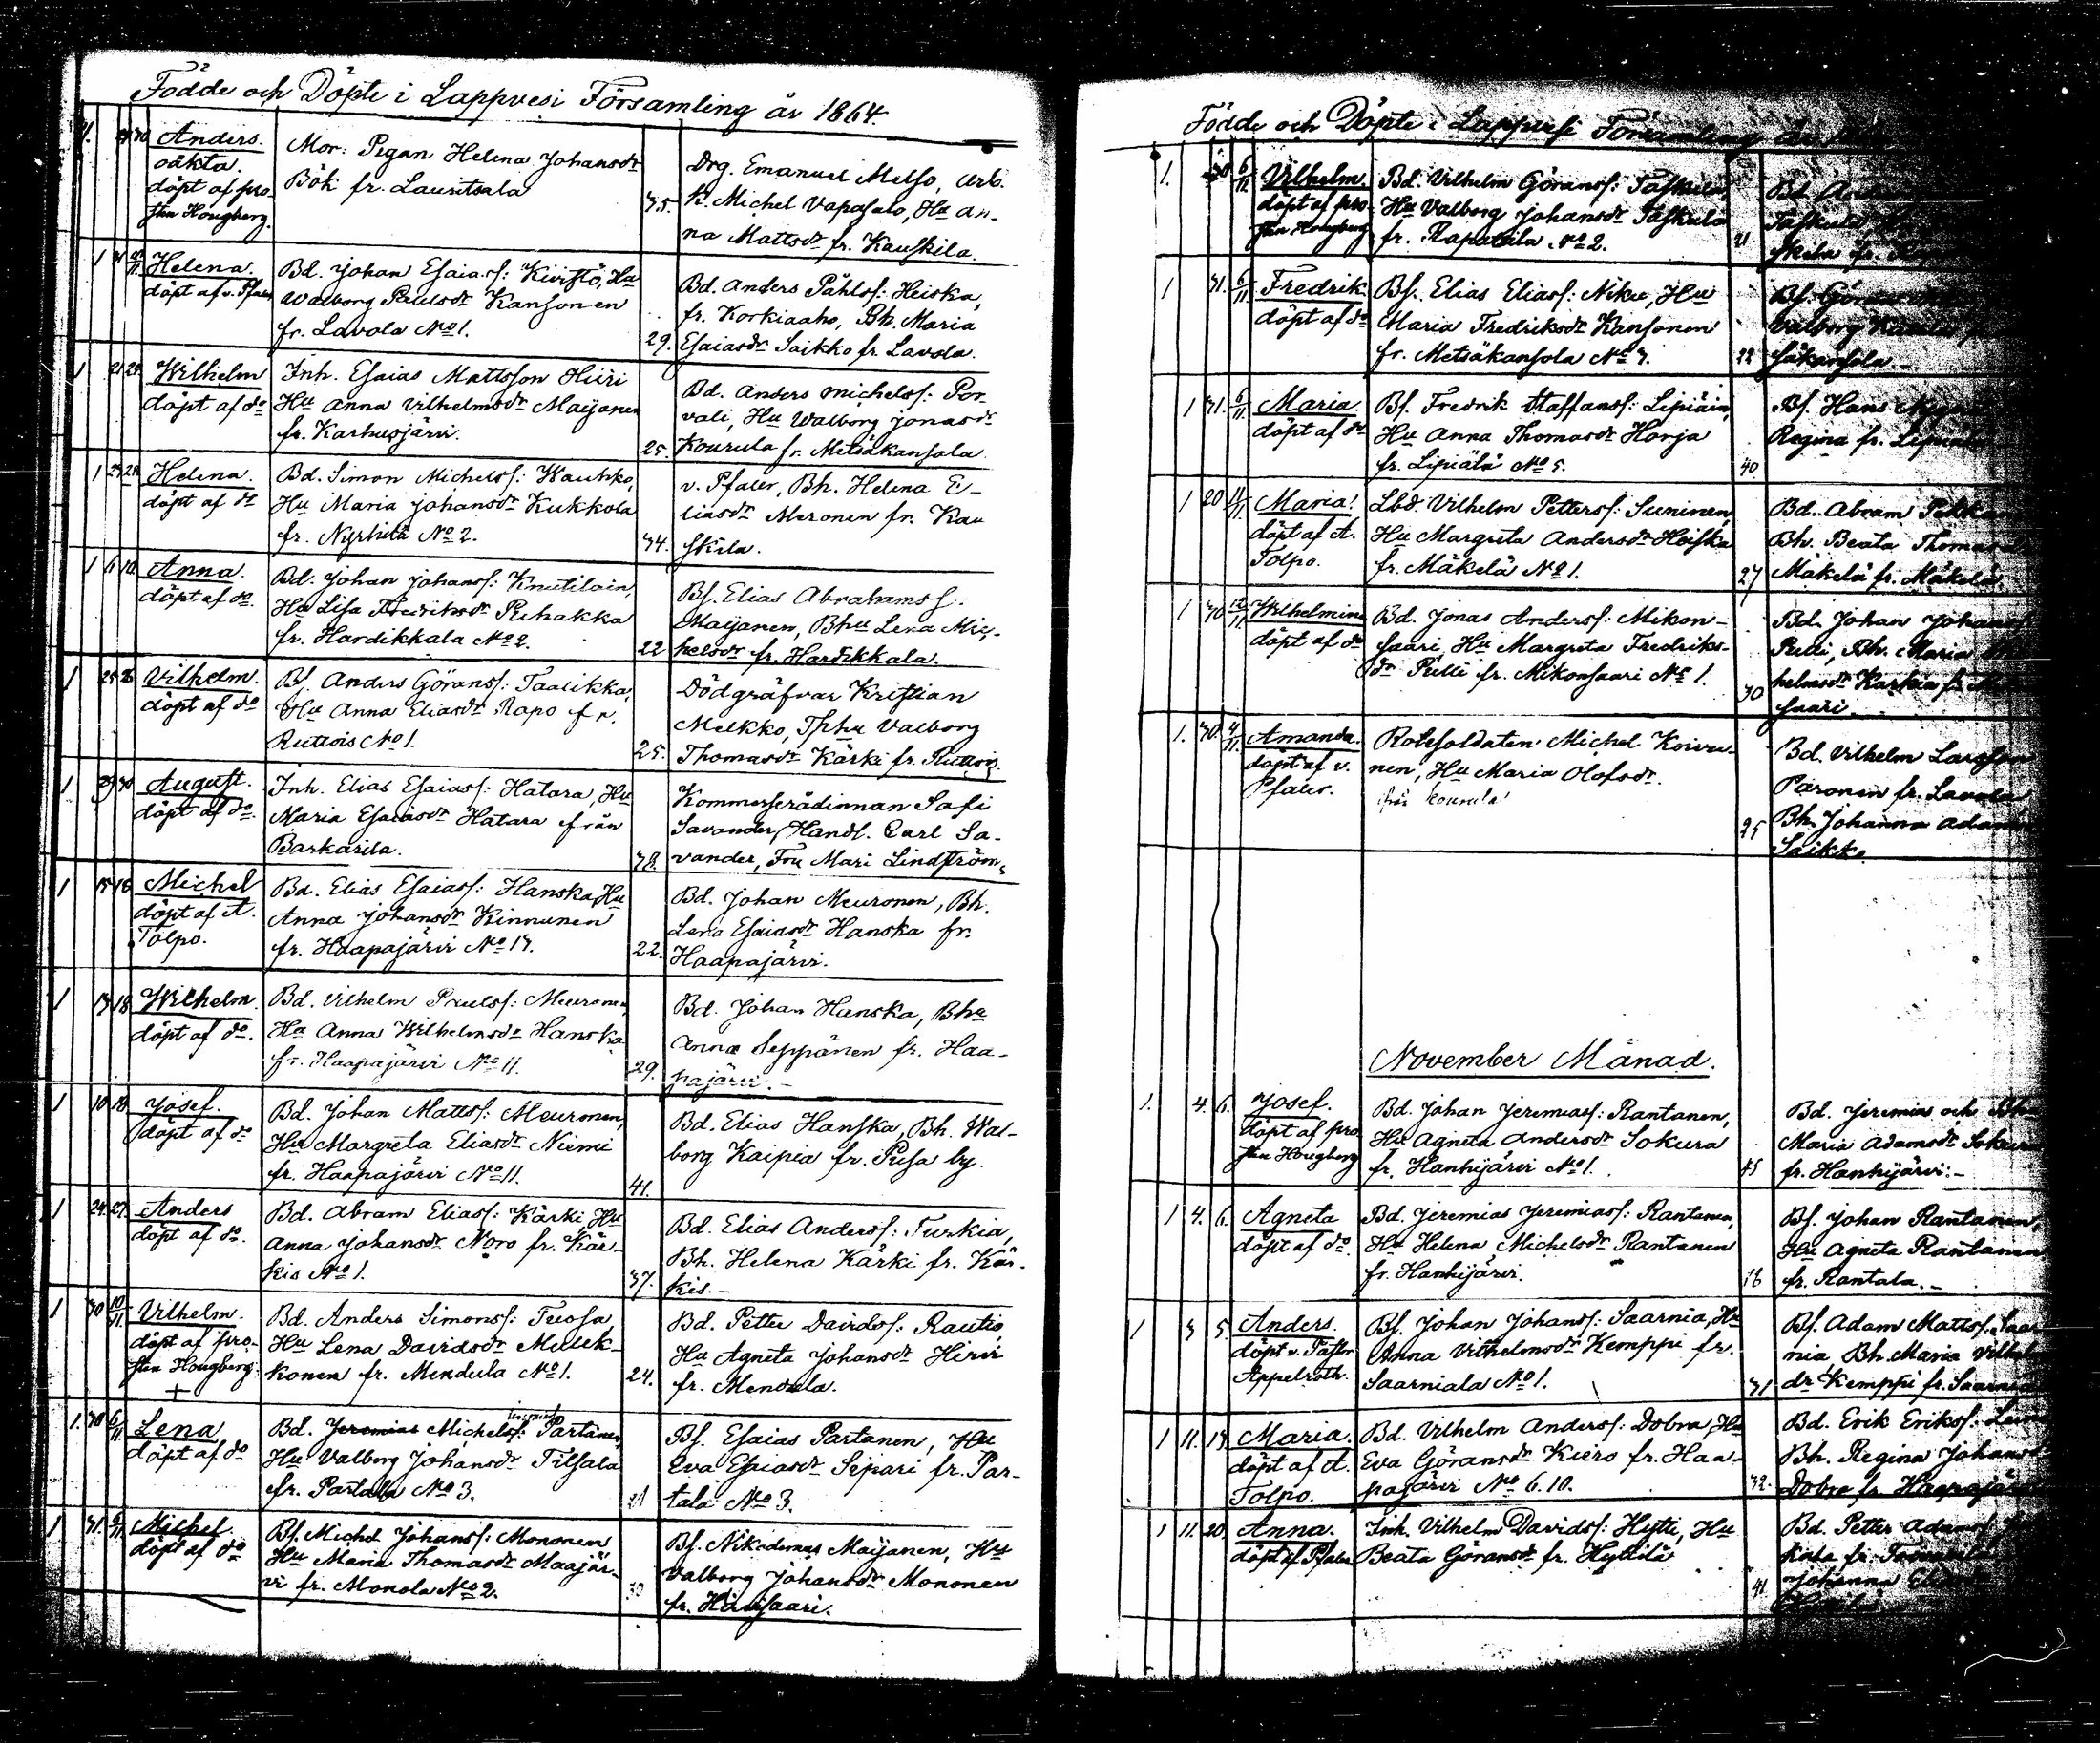 Födde och Döpte i Lappvesi Församling år 1864.
Anders.
oäkta.
döpt af pro-
sten Hougberg.
Mor: Pigan Helena Johansdr
Bök fr. Lauritsala
35.
Drg. Emanuel Melso, Arb.
k. Michel Vapasalo, Hu An-
na Mattsdr fr. Kauskila.
1 31
Helena.
döpt af v. Pfaler
Bd. Johan Esaiass: Kivistö, Hu
Walborg Paulsdr Kansonen
fr. Lavola No 1.
29.
Bd. Anders Påhlss: Heiska,
fr. Korkiaaho, Bh. Maria
Esaiasdr Saikko fr. Lavola.
1
Wilhelm
döpt af do
Inh. Esaias Mattsson Hiiri
Hu Anna Vilhelmsdr Maijanen
fr. Karhusjärvi.
25.
Bd. Anders Michelss: Por-
vali, Hu Walborg Jonasdr
Kourula fr. Metsäkansola.
1
Helena.
döpt af do
Bd. Simon Michelss: Wauhko,
Hu Maria Johansdr Kukkola
fr. Nyrhilä No 2.
34.
v. Pfaler, Bh. Helena E-
liasdr Meronen fr. Kau
skila.
1 6 10
Anna.
döpt af do.
Bd. Johan Johanss: Knutilain,
Hu Lisa Fredriksdr Pihakka
fr. Hardikkala No 2.
22
Bs. Elias Abrahamss:
Maijanen, Bhu Lena Mic-
helsdr fr. Hardikkala.
1 25 26
Vilhelm.
döpt af do
Bs. Anders Göranss: Taalikka,
Hu Anna Eliasdr Rapo fr.
Ruttois No 1.
25.
Dödgräfvar Kristian
Melkko, Tphu Valborg
Thomasdr Kärki fr. Ruttois.
1 29 30
August.
döpt af do.
Inh. Elias Esaiass: Hatara, Hu
Maria Esaiasdr Hatara från
Barkarila.
38.
Kommerserådinnan Sofi
Savander, Handl. Carl Sa-
vander, Fru Mari Lindström.
1 15 18
Michel
döpt af A.
Tolpo.
Bd. Elias Esaiass: Hanska, Hu
Anna Johansdr Kinnunen
fr. Haapajärvi No 17.
22.
Bd. Johan Meuronen, Bh.
Lena Esaiasdr Hanska fr.
Haapajärvi.
1 13 18
Wilhelm.
döpt af do.
Bd. Vilhelm Paulss: Meuronen,
Hu Anna Wilhelmsdr Hanska
fr. Haapajärvi No 11.
29.
Bd. Johan Hanska, Bhu
Anna Seppänen fr. Haa-
pajärvi.-
1 10 18
Josef.
döpt af do
Bd. Johan Mattss: Meuronen,
Hu Margreta Eliasdr Niemi
fr. Haapajärvi No 11.
41.
Bd. Elias Hanska, Bh. Wal-
borg Kaipia fr. Pusa by.
1 24. 27.
Anders
döpt af do.
Bd. Abram Eliass: Kärki, Hu
Anna Johansdr Noro fr. Kär-
kis No 1.
37.
Bd. Elias Anderss: Turkia,
Bh. Helena Kärki fr. Kär-
kis.-
1 30 10/11
Vilhelm.
döpt af pro-
sten Hougberg.
+
Bd. Anders Simonss: Tuosa,
Hu Lena Davidsdr Meuk-
konen fr. Mendula No 1.
24.
Bd. Petter Davidss: Rautio,
Hu Agneta Johansdr Hirvi
fr. Mendula.
1. 30 6/11
Lena
döpt af do
Bd. Jeremias Michelss: Partanen,
Hu Valborg Johansdr Tilsala
fr. Partala No 3.
21
Bs. Esaias Partanen, Hu
Eva Esaiasdr Sipari fr. Par-
tala No 3.
1 31.
Michel.
döpt af do
Bs. Michel Johanss: Mononen
Hu Maria Thomasdr Maajär-
vi fr. Monola No 2.
Bs. Nikodemus Maijanen, Hu
Valborg Johansdr Mononen
fr. Hänsaari.
Födde och Döpte i Lappvesi Församling
1. 30 6/11
Vilhelm.
döpt af pro-
sten Hougberg
Bd. Vilhelm Göranss: Taskula,
Hu Valborg Johansdr Taskula
fr. Rapattila No 2.
21
Bd.
Taskula
skila fr.
1 31. 6/11
Fredrik.
döpt af do
Bs. Elias Eliass: Niku, Hu
Maria Fredriksdr Kansonen
fr. Metsäkansola No 7.
22
Bs. Göran
Valborg
säkansola.-
1 31. 6/11
Maria.
döpt af do
Bs. Fredrik Staffanss: Lipiäin,
Hu Anna Thomasdr Horja
fr. Lipiälä No 5.
40.
Bs. Hans
Regina fr.
1 20 11/11
Maria.
döpt af A.
Tolpo.
Lbd. Vilhelm Petterss: Suninen,
Hu Margreta Andersdr Heiska
fr. Mäkelä No 1.
27
Bd. Abram
Bh. Beata Thomasd
Mäkelä fr. Mäkelä.
1 30 12/11
Wilhelmina
döpt af do
Bd. Jonas Anderss: Mikon-
saari, Hu Margreta Fredriks-
dr Pulli fr. Mikonsaari No 1.
30
Bd. Johan Johans
Pulli, Bh. Maria
helmsdr Karkia fr.
saari.
1. 30. 4/11.
Amanda.
döpt af v.
Pfaler.
Rotesoldaten Michel Koivu-
nen, Hu Maria Olofsdr.
från Kourula
25
Bd. Vilhelm Larsson
Paronen fr. Lavola
Bh. Johanna Adam
Saikko.
November Månad.
1. 4. 6.
Josef.
döpt af pro
sten Hougberg
Bd. Johan Jeremiass: Rantanen,
Hu Agneta Andersdr Sokura
fr. Hanhijärvi No 1.
45
Bd. Jeremias och Bh
Maria Adamsdr Soku
fr. Hanhijärvi:-
1 4. 6.
Agneta
döpt af do.
Bd. Jeremias Jeremiass: Rantanen,
Hu Helena Michelsdr Rantanen
fr. Hanhijärvi.
Bs. Johan Rantanen,
Hu Agneta Rantanen
fr. Rantala.-
1 3 5.
Anders.
döpt v. Pastor
Appelroth.
Bs. Johan Johanss: Saarnia, Hu
Anna Vilhelmsdr Kemppi fr.
Saarniala No 1.
31
Bs. Adam Mattss. Saar
nia, Bh. Maria Vilhelm
dr Kemppi fr. Saarnia
1 11. 13
Maria.
döpt af A.
Tolpo.
Bd. Vilhelm Anderss: Dobra, Hu
Eva Göransdr Kiero fr. Haa-
pajärvi No 6.10.
32.
Bd. Erik Erikss:
Bh. Regina Johansd
Dobra fr. Haapajär
1 11. 20.
Anna.
döpt af Pfaler
Inh. Vilhelm Davidss: Hytti, Hu
Beata Göransdr fr. Hyttilä
41.
Bd. Petter Adamss:
Johanna